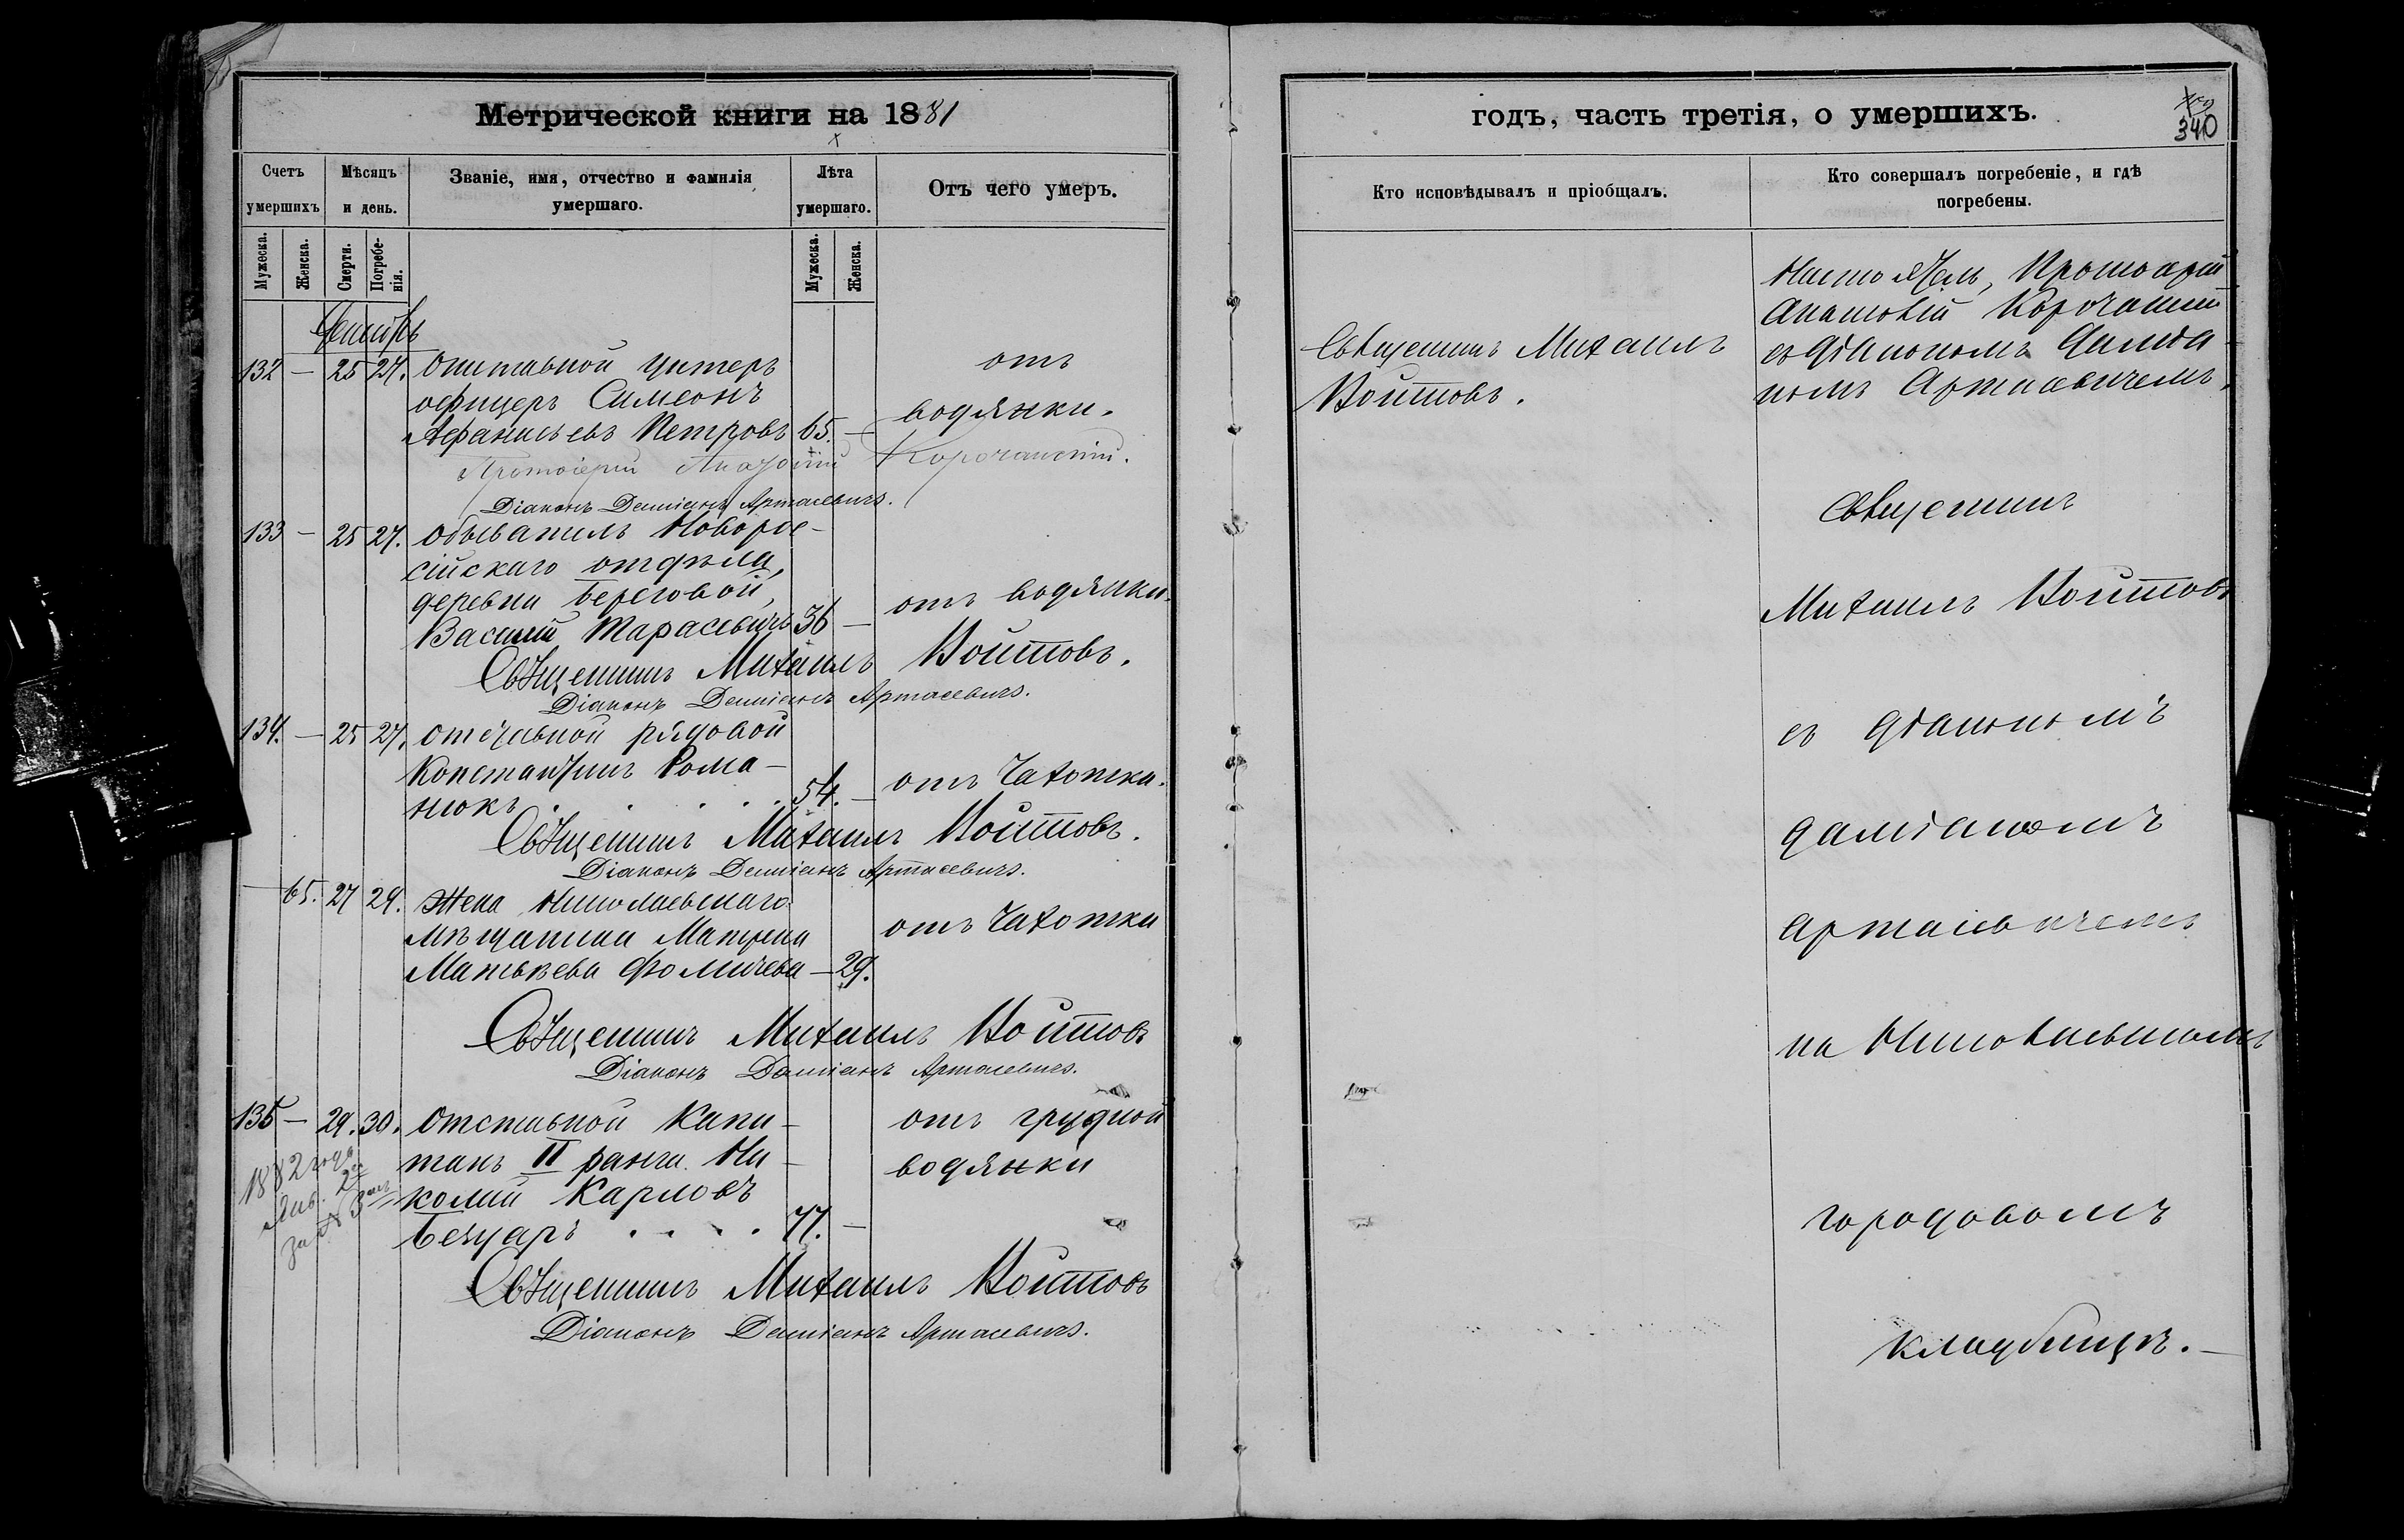 Метрической книги на 1881
Счетъ
умершихъ
Мѣсяцъ
и день.
Званіе, имя, отчество и фамилія
умершаго.
Лѣта
умершаго.
Отъ чего умеръ.
Мужеска.
Женска.
Смерти.
Погребе-
нія.
Мужеска.
Женска.
132 — 25 27. Отставной унтеръ
офицеръ Симеонъ
Аѳанасьевъ Петровъ 65. —
отъ
водянки.
Протоіерей Анатолій Корочанскій.
Діаконъ Даміанъ Артасевичъ.
133 — 25 27. Обыватель Новорос-
сійскаго отдѣла,
деревни Береговой,
Василій Тарасевичъ 36 — отъ водянки.
Священникъ Михаилъ Войтовъ.
Діаконъ Даміанъ Артасевичъ.
134. — 25 27. Отставной рядовой
Константинъ Рома-
нюкъ . . . . 54. — отъ чахотки.
Священникъ Михаилъ Войтовъ.
Діаконъ Даміанъ Артасевичъ.
— 65. 27 29. Жена Николаевскаго
мѣщанина Матрена
Матвѣева Фомичева — 29.
отъ чахотки
Священникъ Михаилъ Войтовъ
Діаконъ Даміанъ Артасевичъ.
135 — 29. 30. Отставной Капи-
танъ II ранга Ни-
колай Карловъ
. . . . 77. —
отъ грудной
водянки
1882 года
Янв. 2
за № 3
Священникъ Михаилъ Войтовъ
Діаконъ Даміанъ Артасевичъ.
годъ, часть третія, о умершихъ.
340
Кто исповѣдывалъ и пріобщалъ.
Кто совершалъ погребеніе, и гдѣ
погребены.
Священникъ Михаилъ
Войтовъ.
Настоятель, Протоіерей
Анатолій Корочанскій
съ діакономъ Даміа-
номъ Артасевичемъ.
Священникъ
Михаилъ Войтовъ
съ діакономъ
Даміаномъ
Артасевичемъ
на Николаевскомъ
городовомъ
кладбищѣ. —